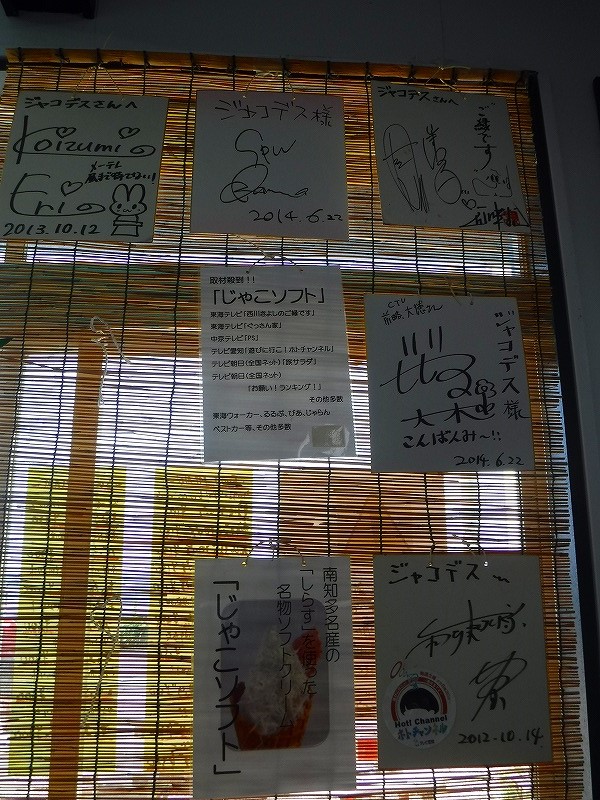 ジャコデスさんへ
Koizumi
Eri
メ〜テレ
2013.10.12
ジャコデス様
2014.6.22
ジャコデスさんへ
ご縁です
取材殺到！！
「じゃこソフト」
東海テレビ「西川きよしのご縁です」
東海テレビ「ぐっさん家」
中京テレビ「PS」
テレビ愛知「遊びに行こ！ホトチャンネル」
テレビ朝日（全国ネット）「旅サラダ」
テレビ朝日（全国ネット）
「お願い！ランキング！」
その他多数
東海ウォーカー、るるぶ、ぴあ、じゃらん
ベストカー等、その他多数
CTV
ジャコデス様
大木
こんばんみ〜!!
2014.6.22
南知多名産の
「しらす」を使った
名物ソフトクリーム
「じゃこソフト」
ジャコデス
Hot! Channel
ホトチャンネル
2012.10.14